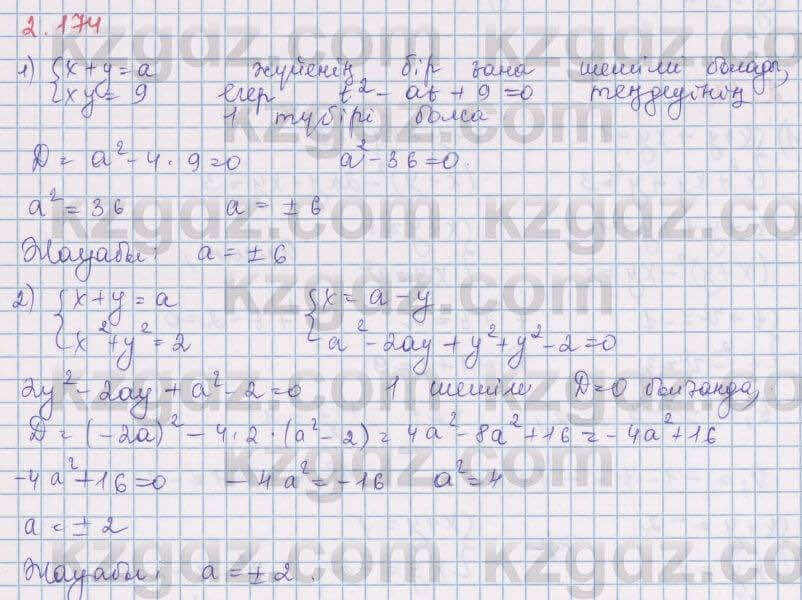 2.174
1) {x+y=a жүйенің бір ғана шешімі болады,
{xy=9 егер t²-at+9=0 теңдеуінің
1 түбірі болса
D = a²-4·9=0 a²-36=0.
a²=36 a=±6
Жауабы: a=±6
2) {x+y=a {x=a-y
{x²+y²=2 {a²-2ay+y²+y²-2=0
2y²-2ay+a²-2=0 1 шешім D=0 болғанда,
D=(-2a)²-4·2·(a²-2)=4a²-8a²+16=-4a²+16
-4a²+16=0 -4a²=-16 a²=4
a=±2
Жауабы: a=±2.
kzgdz.com